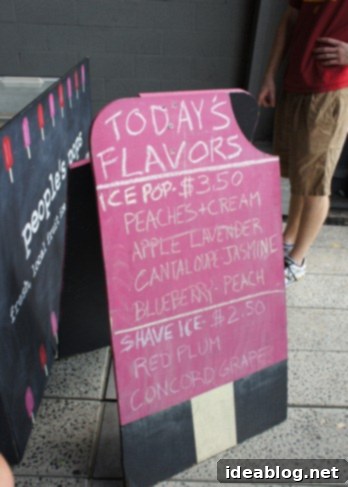 people's pops
fresh. local. fruit.
TODAY'S
FLAVORS
ICE POP - $3.50
PEACHES + CREAM
APPLE LAVENDER
CANTALOUPE JASMINE
BLUEBERRY - PEACH
SHAVE ICE - $2.50
RED PLUM
CONCORD GRAPE
ideablog.net